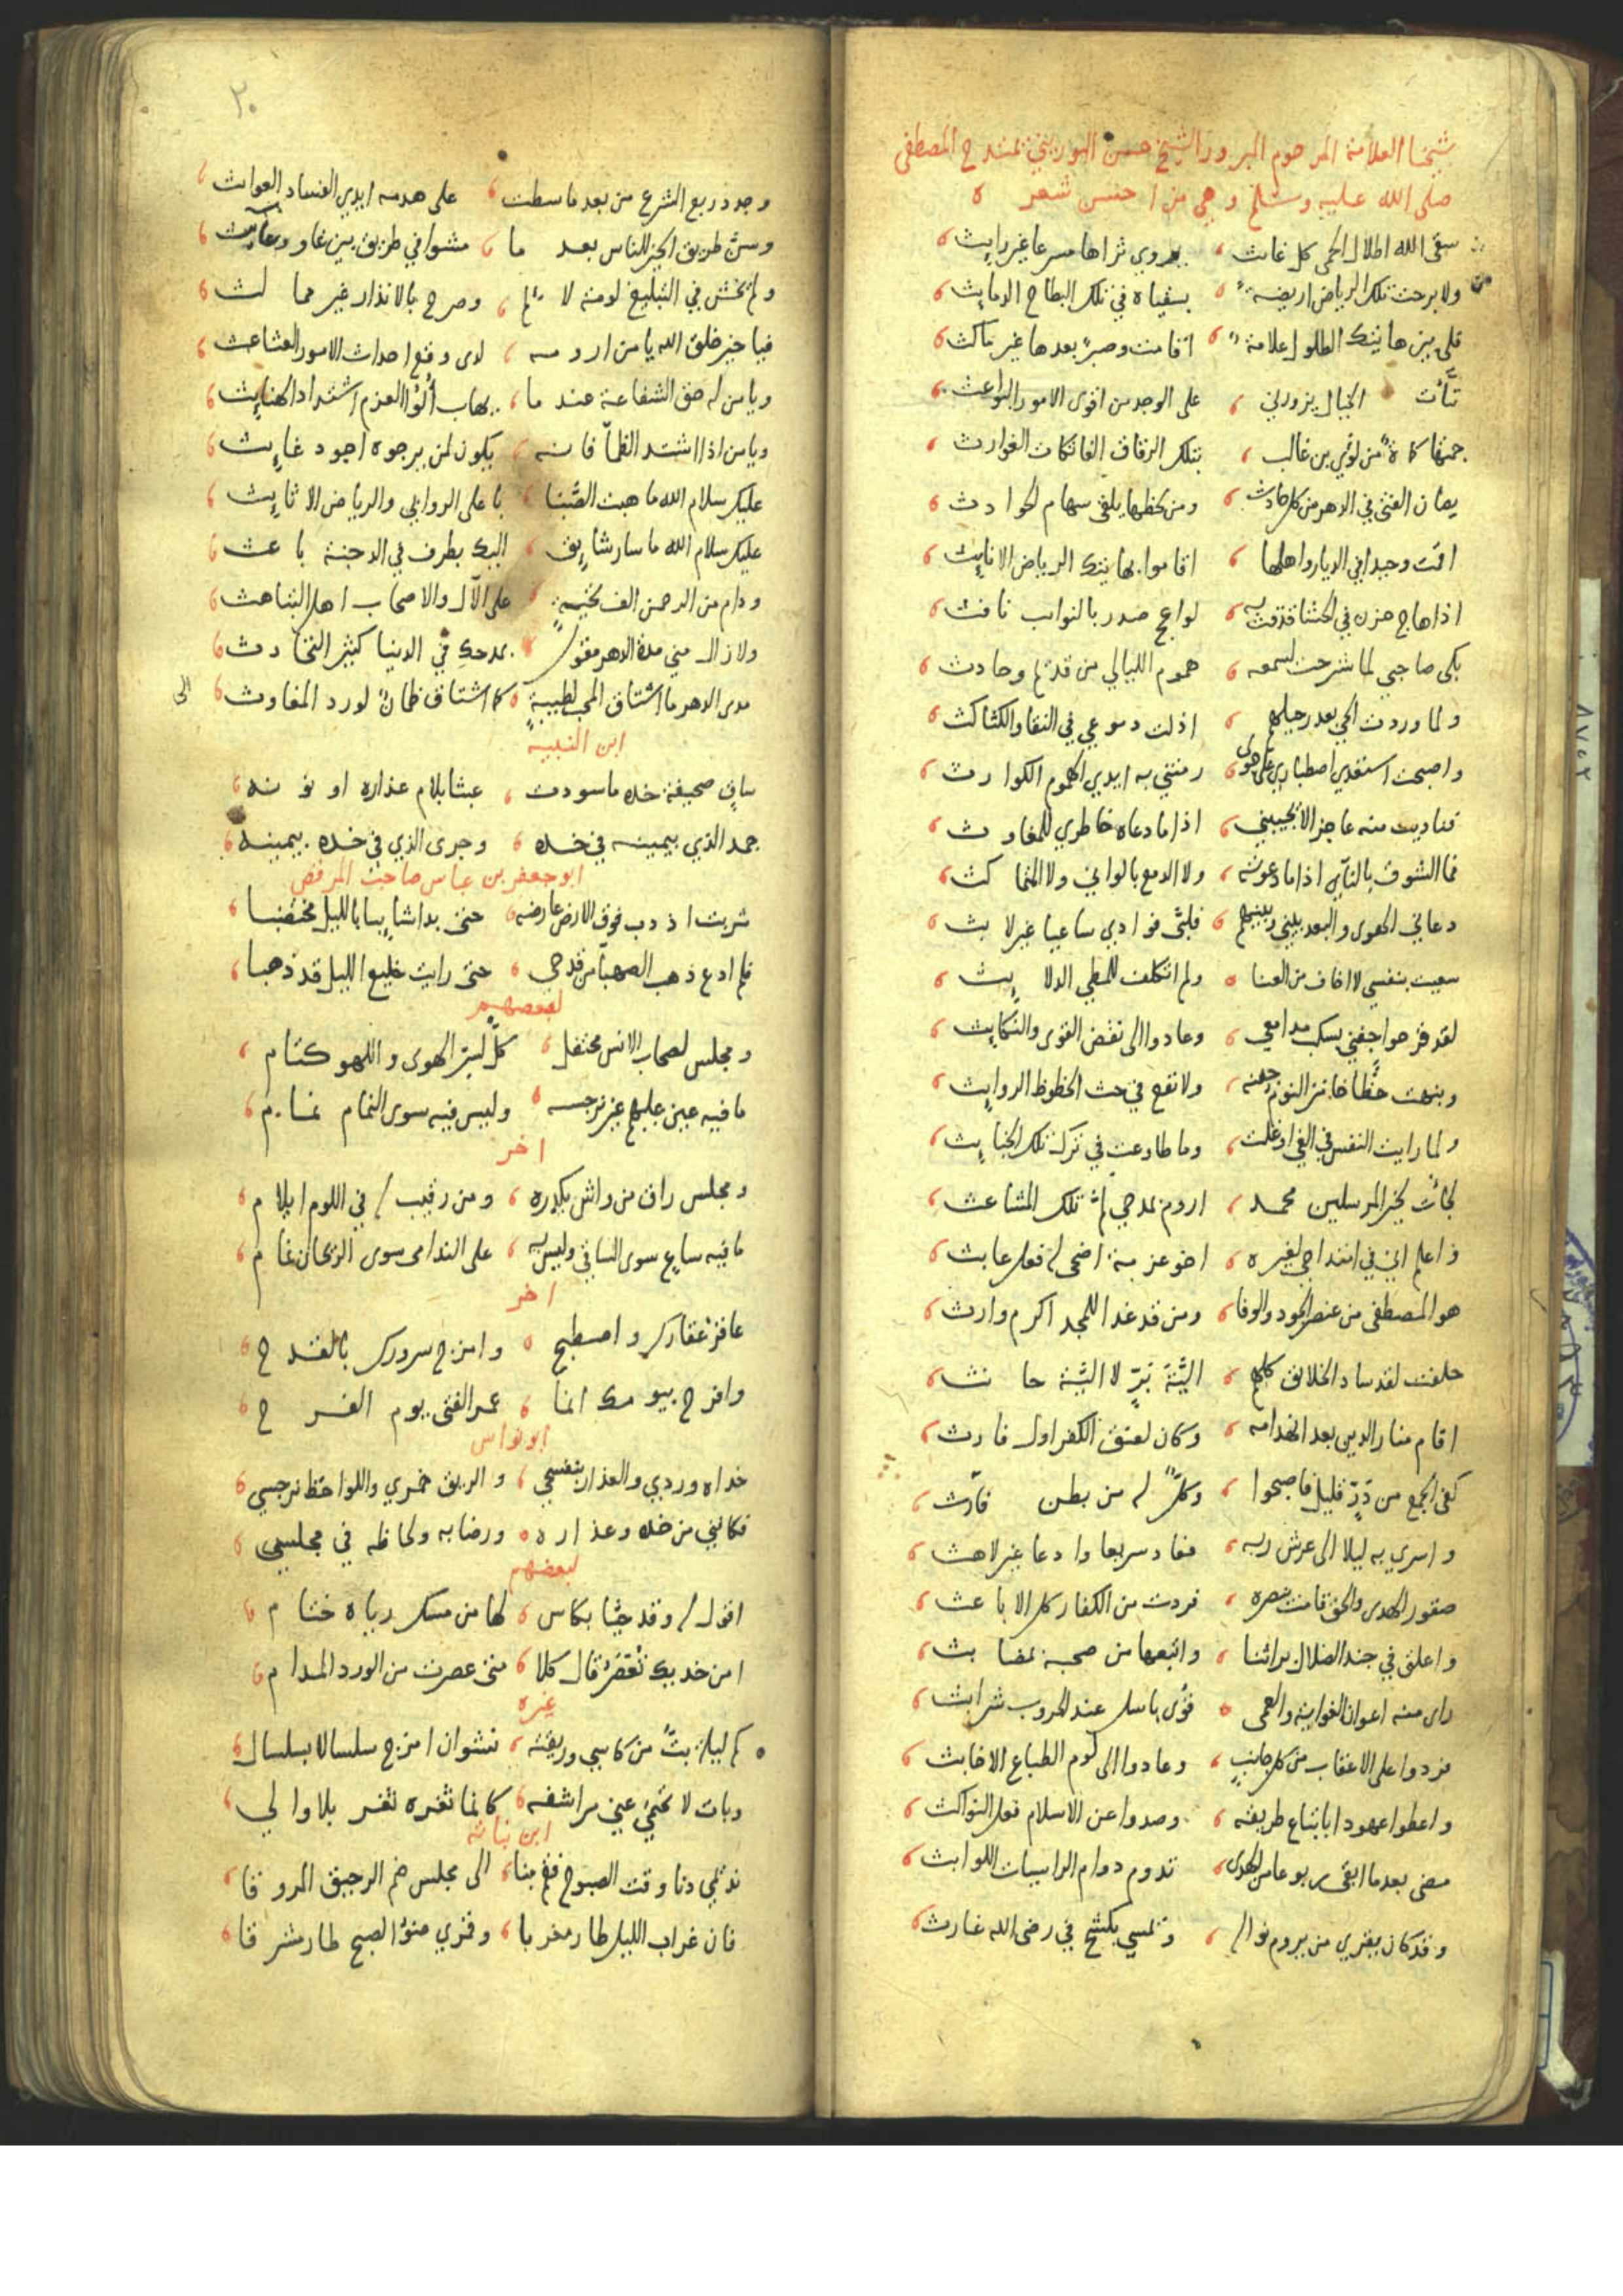 شيخنا العلامة المرحوم المبرور الشيخ حسن البوريني يمتدح المصطفى
صلى الله عليه وسلم وهي من احسن شعره
سقى الله اطلال الحمى كل غائث يروي ثراها مسرعا غير رايث
ولا برحت تلك الرياض اريضة بسقياه في تلك البطاح الدمايث
فلي بين هاتيك الطلول علامة اقامت وصبر بعدها غير ماكث
نأت الخيال يزورني على الوجد من اقوى الامور البواعث
حمتها كماة من لؤي بن غالب بتلك الرقاق الفاتكات الغوارث
يصان الفتى في الدهر من كل حادث ومن لحظها يلقى سهام الحوادث
اقمت وحيدا في الديار واهلها اقاموا بهاتيك الرياض الاثايث
اذا هاج حزن في الحشا قذفت به لواعج صدر بالنوايب نافث
بكى صاحبي لما شرحت لسمعه هموم الليالي من قديم وحادث
ولما وردت الحي بعد رحيلهم اذلت دموعي في النقا والكثاكث
واصبحت استفدي اصطباري على هوى رمتني به ايدي الهموم الكوارث
فناديت منه عاجزا لا يجيبني اذا ما دعاه خاطري للمغاوث
فما الشوق بالنآي اذا ما دعوته ولا الدمع بالواني ولا المتماكث
دعاني الهوى والبعد بيني وبينهم فلبى فوادي ساعيا غير لابث
سعيت بنفسي لا اخاف من العنا ولم اتكلف للمطي الدلايث
لقد قرحوا جفني بسكب مدامعي وعادوا الى نقض القوى والنكايث
ونبهت حظا خاثر النوم جفنه ولا نفع في حث الحظوظ الروايث
ولما رايت النفس في الغي اوغلت وما طاوعت في ترك تلك الخبايث
لجأت لخير المرسلين محمد اروم بمدحي لم تلك المشاعث
واعلم اني في امتداحي لغيره اخو عزمة اضحى له فعل عابث
هو المصطفى من عنصر الجود والوفا ومن قد غدا للمجد اكرم وارث
حلفت لقد ساد الخلايق كلهم الية بر لا الية حانث
اقام منار الدين بعد انهدامه وكان لعنق الكفر اول فارث
كفى الجمع من در قليل فاصبحوا وكل له من بطن فارث
واسري به ليلا الى عرش ربه فعاد سريعا وادعا غير لاهث
صقور الهدى والحق قامت بنصره فردت من الكفار كل الاباعث
واعلق في جند الضلال براثنا واتبعها من صحبه بمضابث
راى منه اعوان الغواية والعمى قوى باسل عند الحروب شرابث
فردوا على الاعقاب من كل جانب وعادوا الى لوم الطباع الاخابث
واعطوا عهودا باتباع طريقه وصدوا عن الاسلام فعل النواكث
مضى بعدما ابقى ربوعا من الهدى تدوم دوام الراسيات اللوابث
وقد كان يقري من يروم نواله ويمسي بكشح في رضى الله غارث
٣٠
وجدد ربع الشرع من بعد ما سطت على هدمه ايدي الفساد العوائث
وسن طريق الخير للناس بعد ما مشوا في طريق بين غاو وعائث
ولم يخش في التبليغ لومة لائم وصرح بالانذار غير مما لث
فيا خير خلق الله يا من ارومه لدى وقع احداث الامور العشاعث
ويا من له حق الشفاعة عند ما يهاب أولو العزم اشتداد الهنايث
ويا من اذا اشتد الظمأ فانه يكون لمن يرجوه اجود غايث
عليك سلام الله ما هبت الصبا باعلى الروابي والرياض الاثايث
عليك سلام الله ما سار شايق اليك بطرف في الدجنة باعث
ودام من الرحمن الف تحية على الآل والاصحاب اهل التباهث
ولا زال مني مدة الدهر مقول بمدحك في الدنيا كثير التحادث
مدى الدهر ما اشتاق المحب لطيبة كما اشتاق ظمآن لورد المغاوث
الى
ابن النبيه
ساق صحيفة خده ما سودت عبثا بلام عذاره او نونه
جمد الذي بيمينه في خده وجرى الذي في خده بيمينه
ابو جعفر بن عباس صاحب المرقص
شربت اذ دب فوق الارض عارضه حتى بدا شايبا بالليل مختضبا
فلم ادع ذهب الصهبا من قدحي حتى رايت خليع الليل قد ذهبا
لبعضهم
ومجلس لصحاب الانس محتفل كل لسر الهوى واللهو كتام
ما فيه عين عليهم غير نرجسه وليس فيه سوى النمام نمام
اخر
ومجلس راق من واش يكدره ومن رقيب له في اللوم ايلام
ما فيه ساع سوى الساقي وليس به على الندامى سوى الريحان نمام
اخر
عاقر عقارك واصطبح وامزج سرورك بالقدح
وافرح بيومك انما عمر الفتى يوم الفرح
ابو نواس
خداه وردي والعذار بنفسجي والريق خمري واللواحظ نرجسي
فكانني من خده وعذاره ورضابه ولحاظه في مجلسي
لبعضهم
اقول له وقد حيا بكاس لها من مسك رياه ختام
امن خديك تعصر قال كلا متى عصرت من الورد المدام
غيره
كم ليلة بت من كاسي وريقته نشوان امزج سلسالا بسلسال
وبات لا تحتمي عني مراشفه كانما ثغره ثغر بلا والي
ابن نباته
نديمي دنا وقت الصبوح فقم بنا الى مجلس ضم الرحيق المروقا
فان غراب الليل طار مغربا وقمري ضوء الصبح طار مشرقا